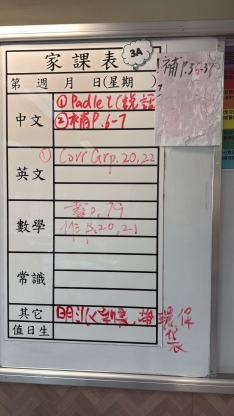 家課表
3A
第 週 月 日(星期
補P.36-37
中文
① Padlet(說話
②補P.6-7
英文
① Corr Grp.20,22
數學
書P.79
作P.20,21
常識
其它
環保袋
值日生